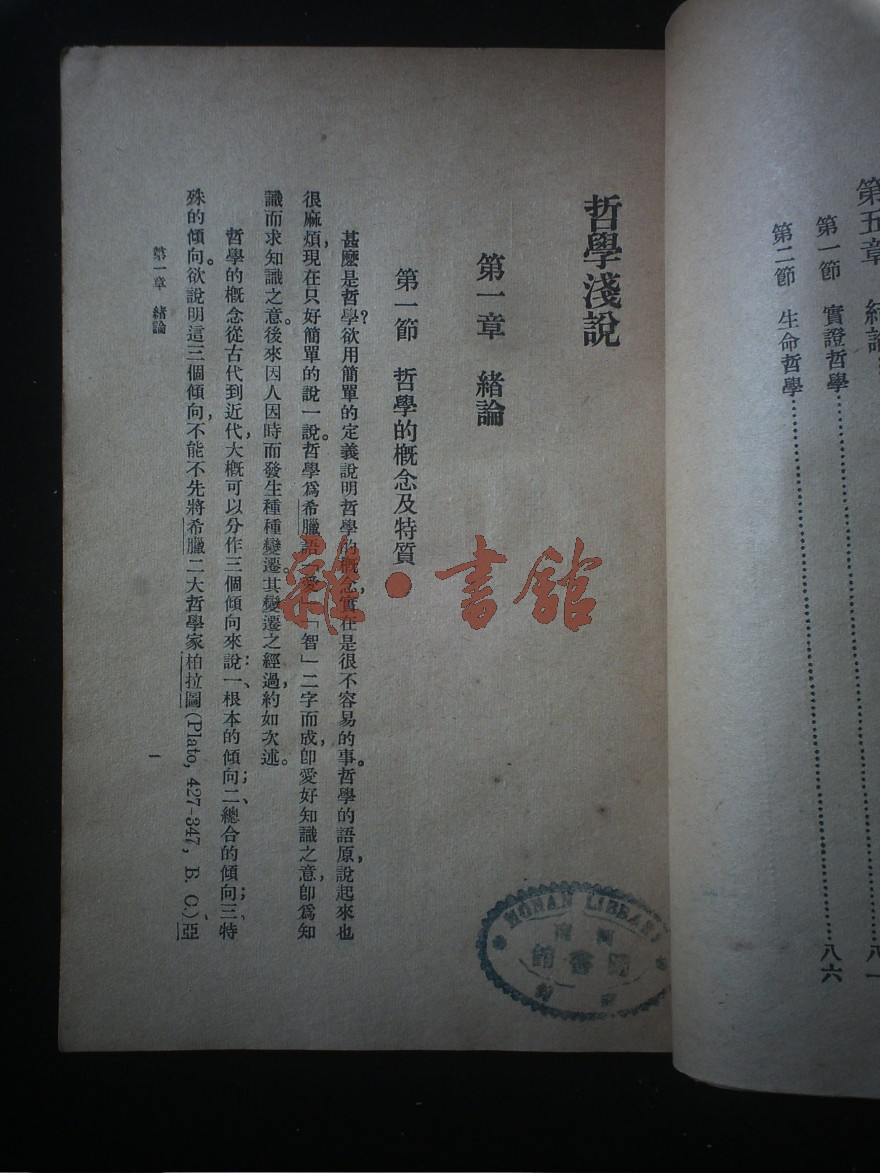 第五章 結論
第一節 實證哲學……………………八一
第二節 生命哲學……………………八六
哲學淺說
第一章 緒論
第一節 哲學的概念及特質
甚麼是哲學?欲用簡單的定義說明哲學的概念,實在是很不容易的事。哲學的語原,說起來也
很麻煩,現在只好簡單的說一說。哲學爲希臘語「愛」「智」二字而成,卽愛好知識之意,卽爲知
識而求知識之意。後來因人因時而發生種種變遷。其變遷之經過,約如次述。
哲學的概念從古代到近代,大概可以分作三個傾向來說:一、根本的傾向;二、總合的傾向;三、特
殊的傾向。欲說明這三個傾向,不能不先將希臘二大哲學家柏拉圖(Plato, 427-347, B. C.)、亞
第一章 緒論
一
雜·書館
HONAN LIBRARY
河南
圖書館